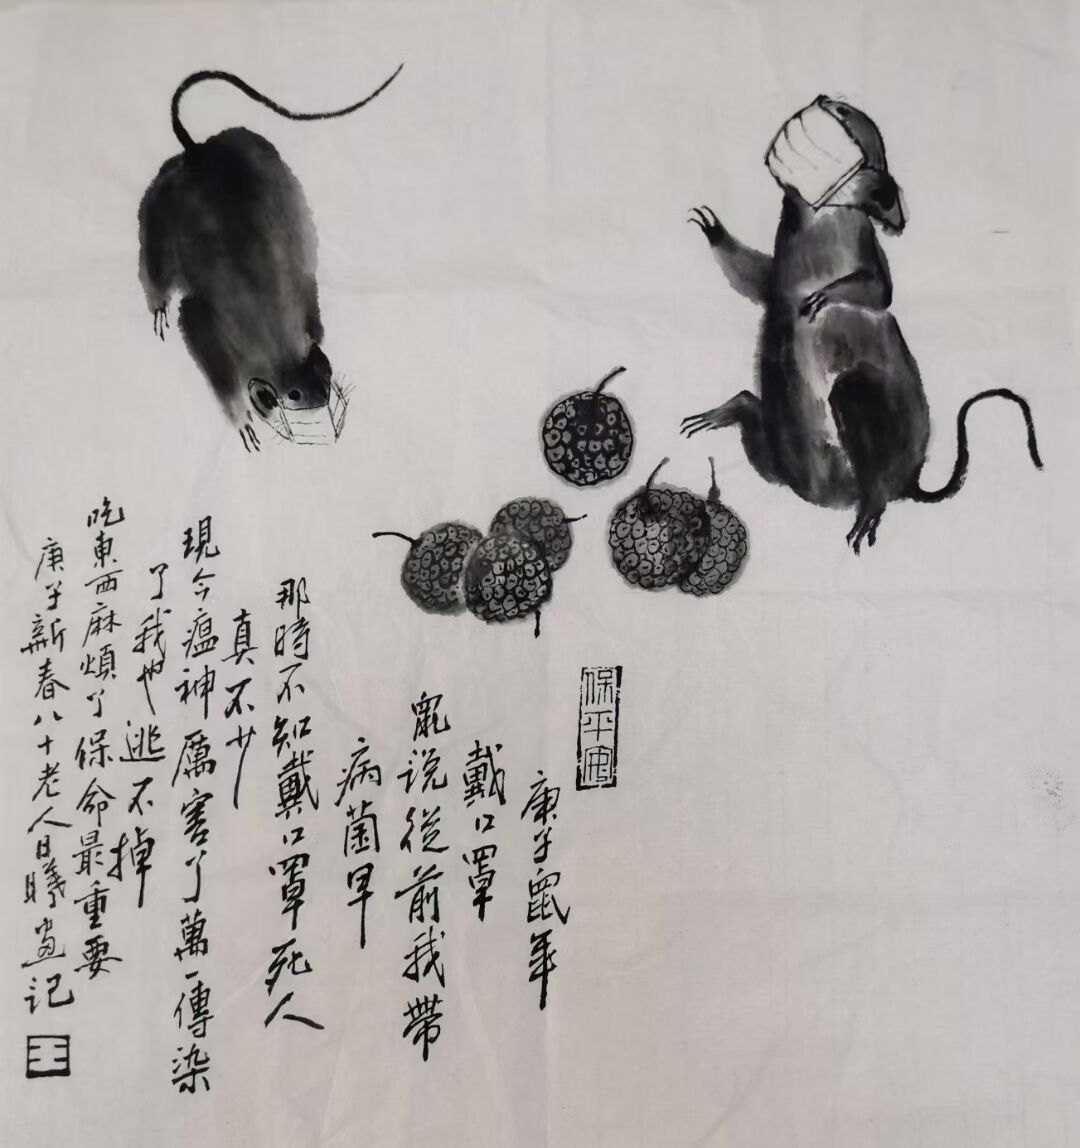 保平安
庚子鼠年
戴口罩
鼠说從前我带
病菌早
那時不知戴口罩死人
真不少
現今瘟神厲害了萬一傳染
了我也逃不掉
吃東西麻煩了保命最重要
庚子新春八十老人日曦画记
王